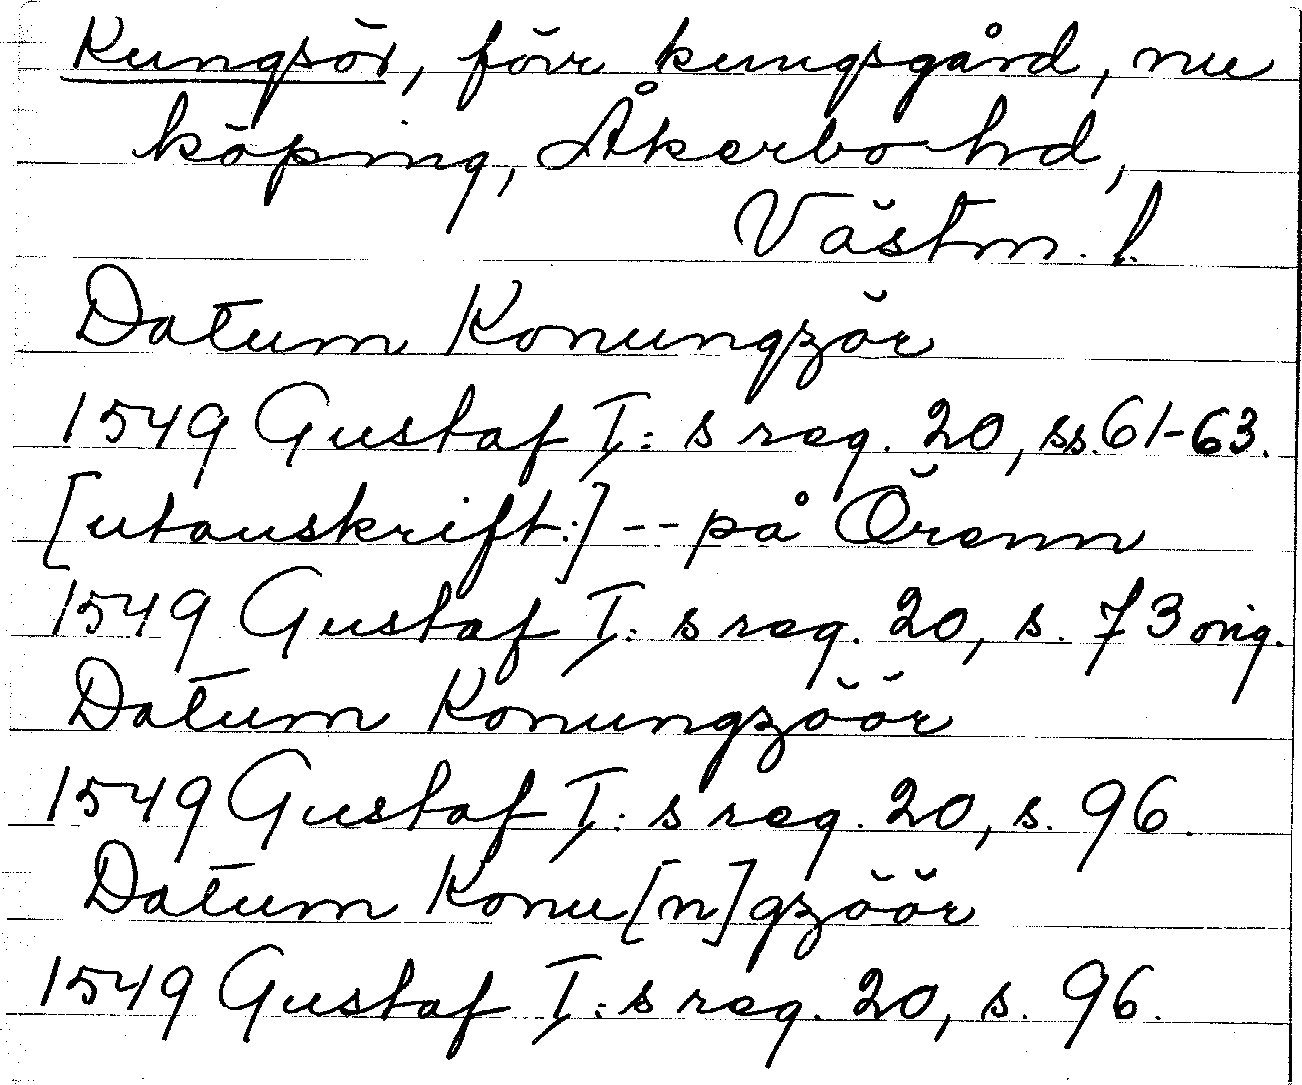 Kungsör, förr kungsgård, nu
köping, Åkerbo hd,
Västm. l.
Datum Konungzör
1549 Gustaf I:s reg. 20, ss. 61-63.
[utanskrift:] -- på Örenn
1549 Gustaf I:s reg. 20, s. 73 orig.
Datum Konungzöör
1549 Gustaf I:s reg. 20, s. 96.
Datum Konu[n]gzöör
1549 Gustaf I:s reg. 20, s. 96.